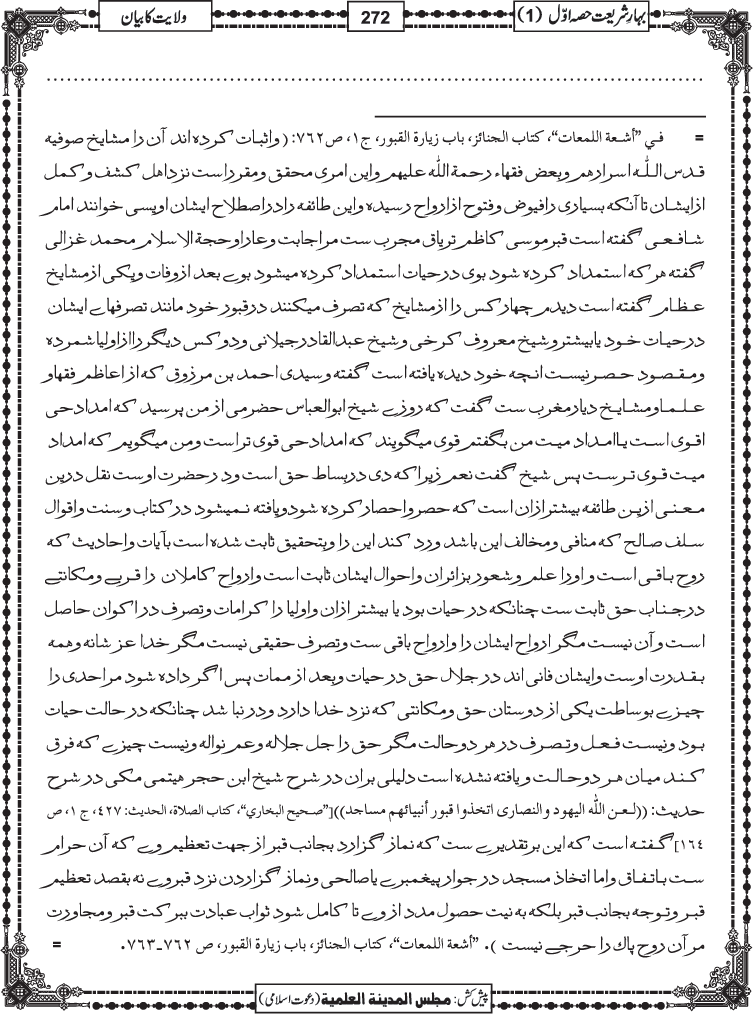 بہار شریعت حصہ اوّل (1)
272
ولایت کا بیان
= في ”أشعة اللمعات“، كتاب الجنائز، باب زيارة القبور، ج١، ص٧٦٢: (واثبات كرده اند آن را مشايخ صوفيه
قدس الله اسرارهم وبعض فقهاء رحمة الله عليهم واين امرى محقق ومقرر است نزد اهل كشف وكمل
از ايشان تا آنكه بسيارى را فيوض وفتوح از ارواح رسيده واين طائفه را در اصطلاح ايشان اويسى خوانند امام
شافعى گفته است قبر موسى كاظم ترياق مجرب ست مر اجابت دعا را وحجة الاسلام محمد غزالى
گفته هر كه استمداد كرده شود بوى در حيات استمداد كرده ميشود بوے بعد از وفات ويكى از مشايخ
عظام گفته است ديدم چهار كس را از مشايخ كه تصرف ميكنند در قبور خود مانند تصرفهاے ايشان
در حيات خود يا بيشتر وشيخ معروف كرخى وشيخ عبدالقادر جيلانى ودو كس ديگر را از اوليا شمرده
ومقصود حصر نيست انچه خود ديده يافته است گفته وسيدى احمد بن مرزوق كه از اعاظم فقها و
علما ومشايخ ديار مغرب ست گفت كه روزے شيخ ابوالعباس حضرمى از من پرسيد كه امداد حى
اقوى است يا امداد ميت من بگفتم قوى ميگويند كه امداد حى قوى تر است ومن ميگويم كه امداد
ميت قوى ترست پس شيخ گفت نعم زيرا كه دى در بساط حق است ودر حضرت اوست نقل درين
معنى ازين طائفه بيشتر ازان است كه حصر واحصار كرده شود ويافته نميشود در كتاب وسنت واقوال
سلف صالح كه منافى ومخالف اين باشد ورد كند اين را وبتحقيق ثابت شده است بآيات واحاديث كه
روح باقى است و اورا علم وشعور بزائران واحوال ايشان ثابت است وارواح كاملان را قربے ومكانتے
در جناب حق ثابت ست چنانكه در حيات بود يا بيشتر ازان واوليا را كرامات وتصرف در اكوان حاصل
است وآن نيست مگر ارواح ايشان را وارواح باقى ست وتصرف حقيقى نيست مگر خدا عز شانه وهمه
بقدرت اوست وايشان فانى اند در جلال حق در حيات وبعد از ممات پس اگر داده شود مر احدى را
چيزے بوساطت يكى از دوستان حق ومكانتى كه نزد خدا دارد ودر نبا شد چنانكه در حالت حيات
بود ونيست فعل وتصرف در هر دو حالت مگر حق را جل جلاله وعم نواله ونيست چيزے كه فرق
كند ميان هر دو حالت و يافته نشده است دليلى بران در شرح شيخ ابن حجر هيتمى مكى در شرح
حديث: ((لعن الله اليهود والنصارى اتخذوا قبور أنبيائهم مساجد))[”صحيح البخاري“، كتاب الصلاة، الحديث: ٤٢٧، ج ١، ص
١٦٤] گفته است كه اين بر تقديرے ست كه نماز گزارد بجانب قبر از جهت تعظيم وے كه آن حرام
ست باتفاق واما اتخاذ مسجد در جوار پيغمبرے يا صالحى ونماز گزاردن نزد قبر وے نه بقصد تعظيم
قبر وتوجه بجانب قبر بلكه به نيت حصول مدد از وے تا كامل شود ثواب عبادت ببركت قبر ومجاورت
مر آن روح پاك را حرجے نيست ). ”أشعة اللمعات“، كتاب الجنائز، باب زيارة القبور، ص ٧٦٢-٧٦٣. =
پیش کش: مجلس المدينة العلمية (دعوت اسلامی)